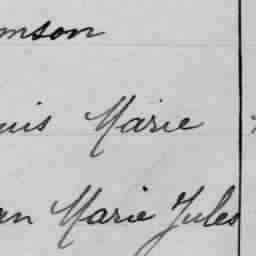 mson
uis Marie
an Marie Jules